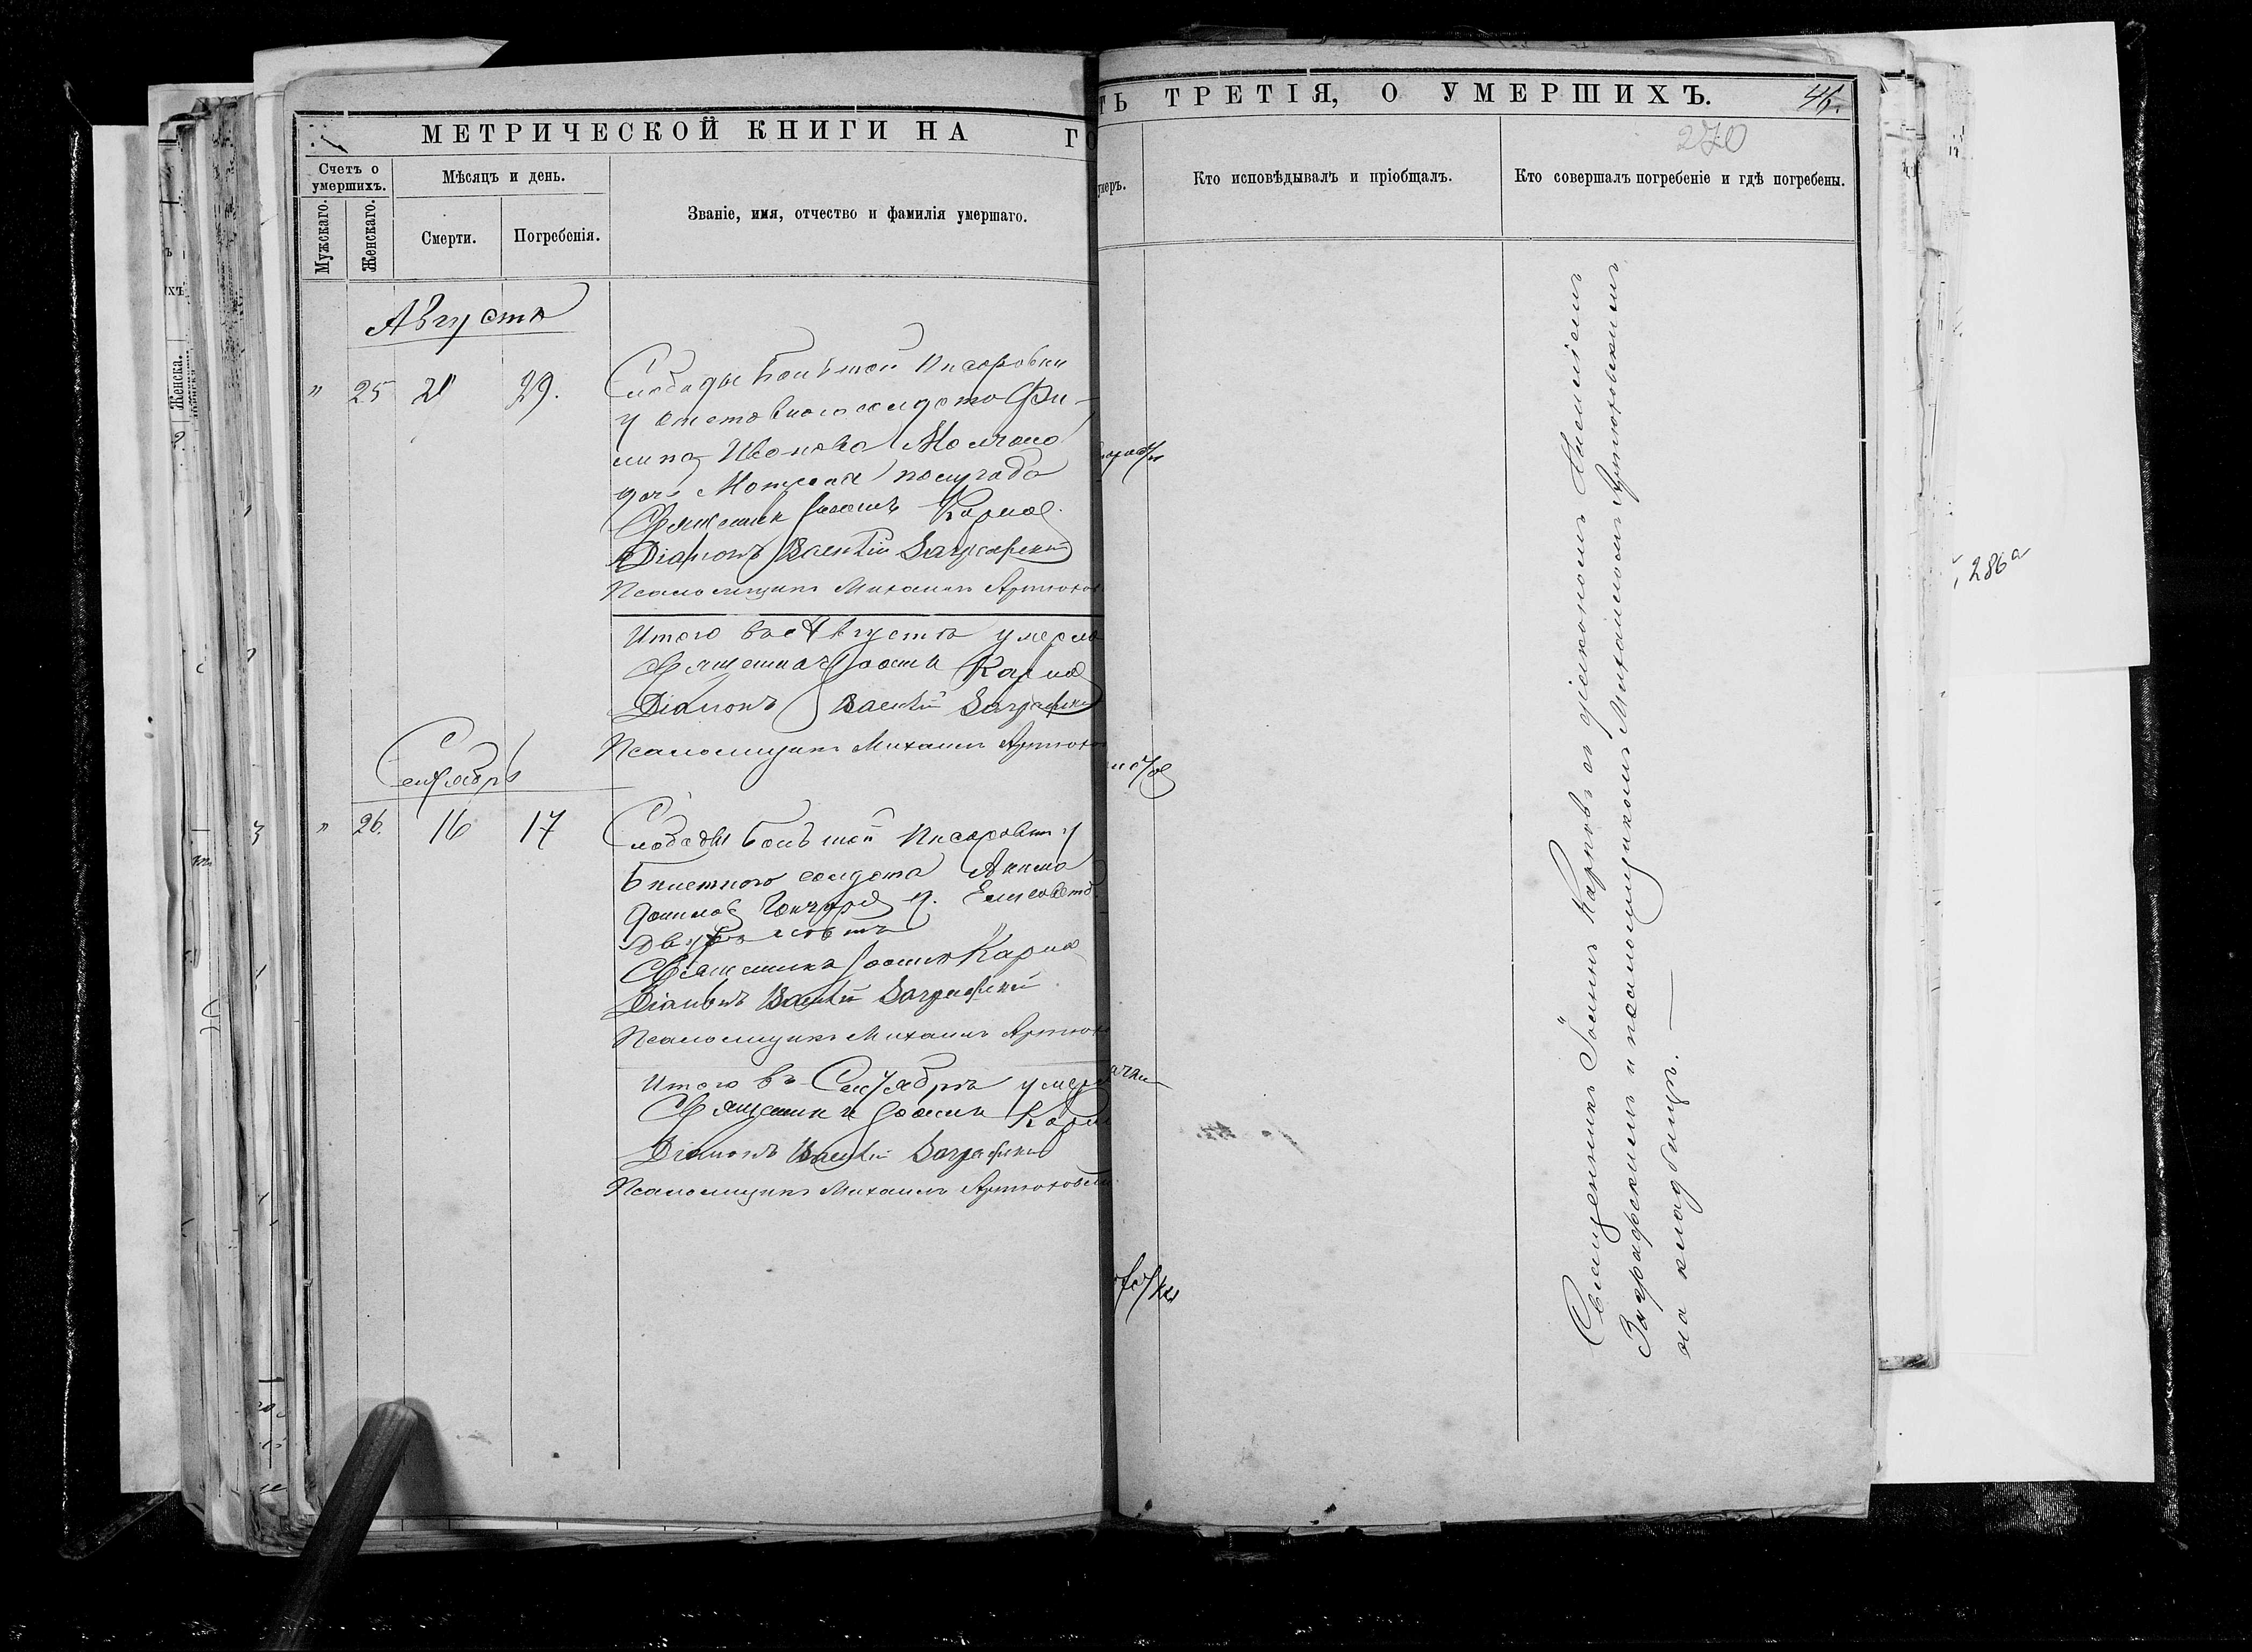 МЕТРИЧЕСКОЙ КНИГИ НА ГО
Счетъ о умершихъ.
Мужскаго.
Женскаго.
Мѣсяцъ и день.
Смерти.
Погребенія.
Званіе, имя, отчество и фамилія умершаго.
Августъ
" 25 29.
Слободы Большой Писаровки
у отставного солдата Фи-
липа Иванова
дочь полугода
Священник Іоаннъ Карпов
Діаконъ Василій Заграфскій
Псаломщикъ Михаилъ Артюхов
Итого въ Августѣ умерло
Священникъ Іоаннъ Карпов
Діаконъ Василій Заграфскій
Псаломщикъ Михаилъ Артюхов
Сентябрь
" 26. 16 17
Слободы Большой Писаровки у
билетного солдата Акима
Данилов Гончар д. Елисавета
двухъ лѣтъ
Священникъ Іоаннъ Карпов
Діаконъ Василій Заграфскій
Псаломщикъ Михаилъ Артюхов
Итого въ Сентябрѣ умерло
Священникъ Іоаннъ Карпов
Діаконъ Василій Заграфскій
Псаломщикъ Михаилъ Артюховск
ТЬ ТРЕТІЯ, О УМЕРШИХЪ.
46.
270
умеръ.
Кто исповѣдывалъ и пріобщалъ.
Кто совершалъ погребеніе и гдѣ погребены.
Священникъ Іоаннъ Карповъ съ діакономъ Василіемъ
Заграфскимъ и псаломщикомъ Михаиломъ Артюховскимъ
на кладбищѣ.
286а
Женска.